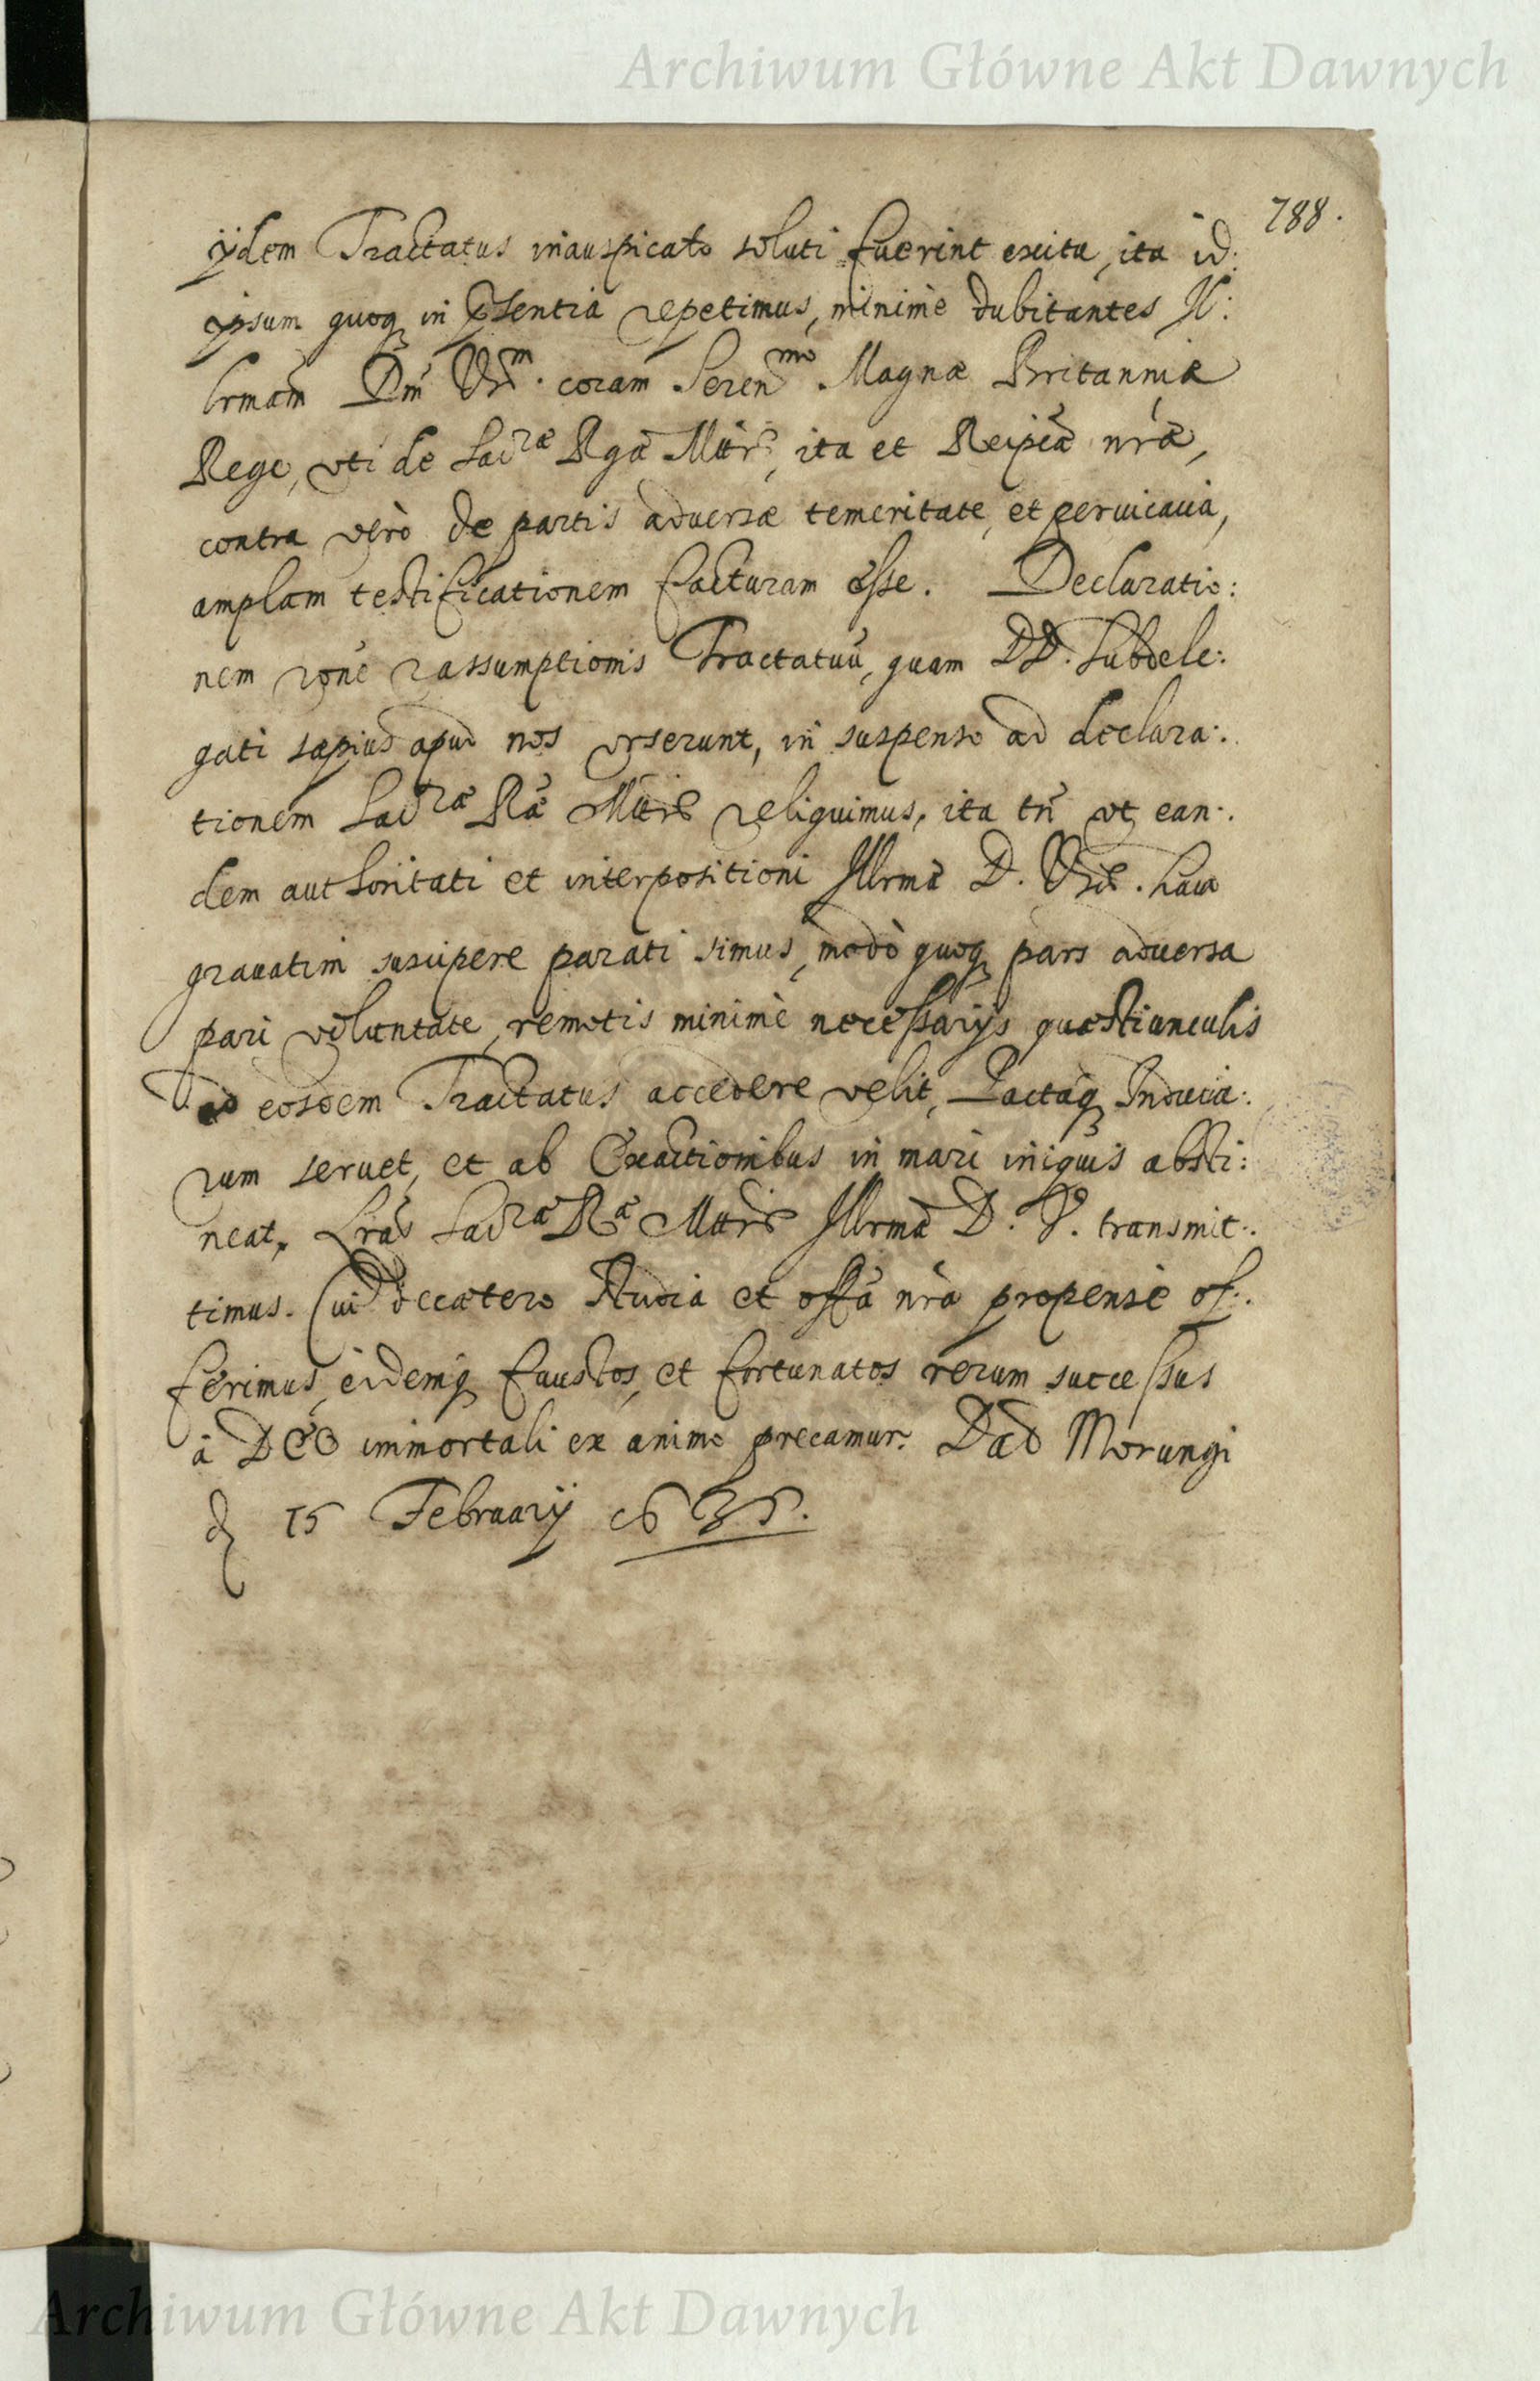 Archiwum Główne Akt Dawnych
788.
ijdem Tractatus inauspicato soluti fuerint exitu, ita id:
ipsum quoq in psentia repetimus, minimè dubitantes Il:
lrmam Dm Vrm. coram Serenmo Magnæ Britanniæ
Rege, vti de Sacræ Rgæ Mttis, ita et Reipcæ nræ,
contra verò de partis aduersæ temeritate, et peruicacia,
amplam testificationem facturam esse. Declaratio:
nem rone reassumptionis Tractatuū, quam DD. Subdele:
gati sæpius apud nos vrserunt, in suspenso ad declara:
tionem Sacræ Ræ Mttis reliquimus, ita tn vt ean:
dem authoritati et interpositioni Illrmæ D. Vræ. haud
grauatim suscipere parati simus, modò quoq pars aduersa
pari voluntate, remotis minimè necessarijs quæstiunculis
ad eosdem Tractatus accedere velit, Pactaq Inducia:
rum seruet, et ab Exactionibus in mari iniquis absti:
neat, Lras Sacræ Ræ Mttis Illrmæ D. V. transmit:
timus. Cui de cætero Studia et offa nra propensè of:
ferimus, eidemq faustos, et fortunatos rerum successus
à DEO immortali ex animo precamur. Dat Morungi
d 15 Februarij 1635.
Archiwum Główne Akt Dawnych